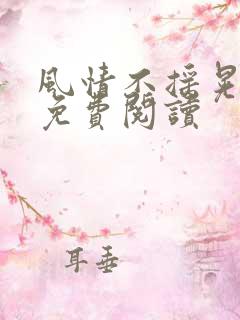 風情不搖晃
免費閱讀
耳垂